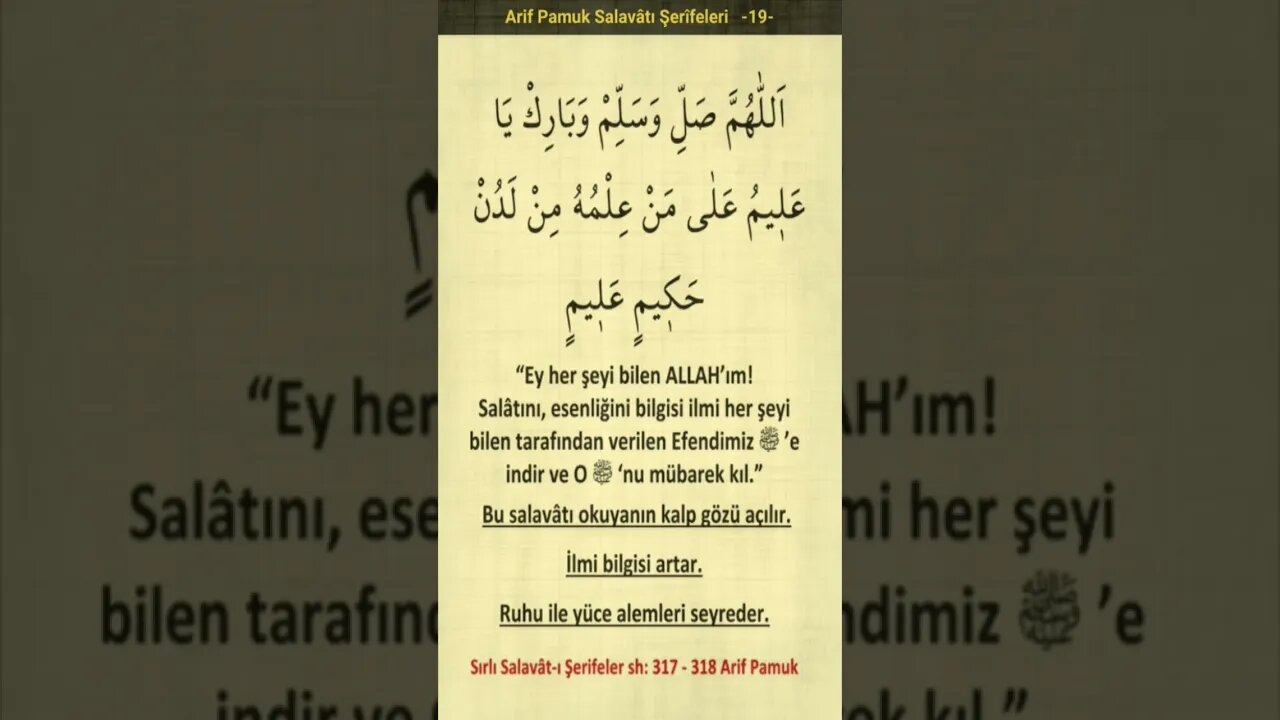 Arif Pamuk Salavâtı Şerîfeleri -19-
اَللّٰهُمَّ صَلِّ وَسَلِّمْ وَبَارِكْ يَا
عَلٖيمُ عَلٰى مَنْ عِلْمُهُ مِنْ لَدُنْ
حَكٖيمٍ عَلٖيمٍ
“Ey her şeyi bilen ALLAH’ım!
Salâtını, esenliğini bilgisi ilmi her şeyi
bilen tarafından verilen Efendimiz ﷺ ’e
indir ve O ﷺ ‘nu mübarek kıl.”
Bu salavâtı okuyanın kalp gözü açılır.
İlmi bilgisi artar.
Ruhu ile yüce alemleri seyreder.
Sırlı Salavât-ı Şerifeler sh: 317 - 318 Arif Pamuk